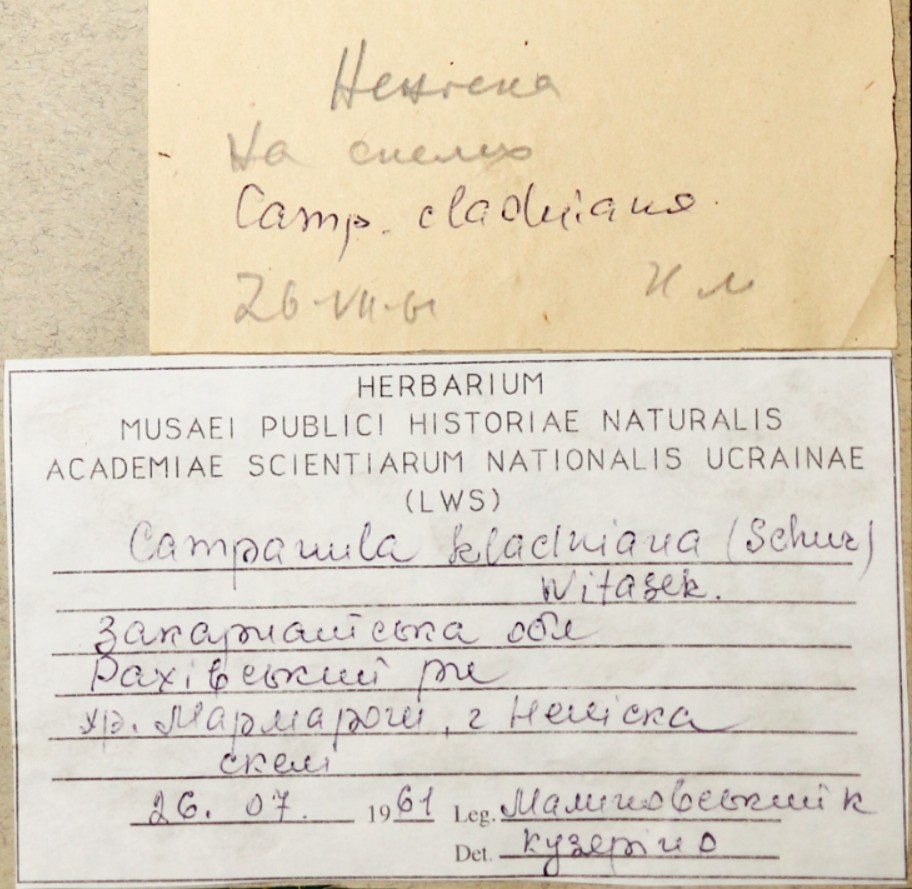 Ненєска
На скелях
Camp. cladniana
26-VII-61 К М
HERBARIUM
MUSAEI PUBLICI HISTORIAE NATURALIS
ACADEMIAE SCIENTIARUM NATIONALIS UCRAINAE
(LWS)
Campanula kladniana (Schur)
Witasek.
Закарпатська обл
Рахівський рн
хр. Мармароси, г Неніска
скелі
26. 07. 1961 Leg. Малиновський К
Det. Кузярін О